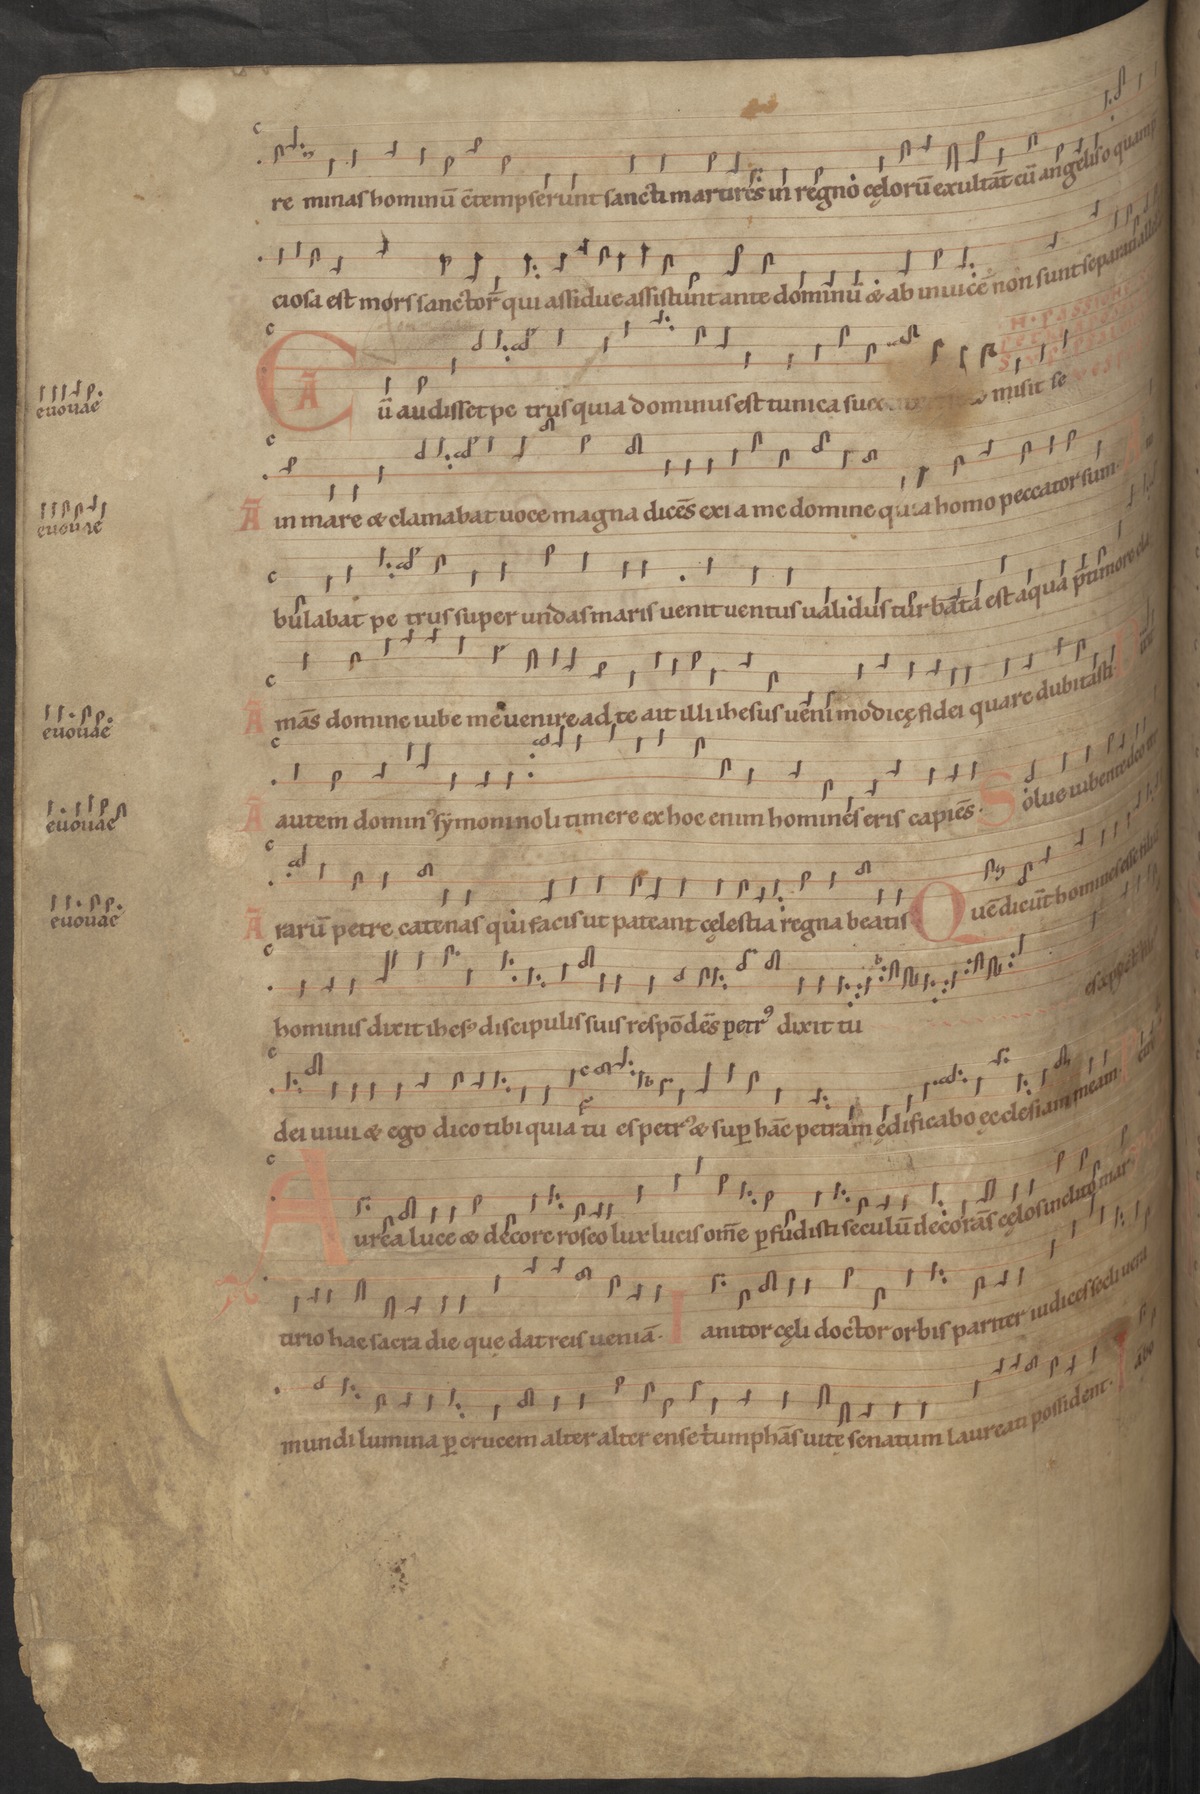 re minas hominū c̄tempserunt sancti martires in regno cęlorū exultāt cū angelis o quam p
ciosa est mors sanctor̄ qui assidue assistunt ante dominū & ab inuicē non sunt separati
IN PASSIONE
Cū audisset petrus quia dominus est tunica misit se
euouae
in mare & clamabat uoce magna dicēs exi a me domine quia homo peccator sum. Am
euouae
bulabat petrus super undas maris uenit uentus ualidus turbata est aqua p̄ timore cla
mās domine iube me uenire ad te ait illi ihesus ueni modicę fidei quare dubitasti.
euouae
autem domin⁹ sẏmoni noli timere ex hoc enim homines eris capiēs. Solue iubente deo
euouae
rarū petre catenas qui facis ut pateant cęlestia regna beatis Quē dicūt homines esse filiū
euouae
hominis dixit ihes⁹ discipulis suis respōdēs petr⁹ dixit tu
dei uiui & ego dico tibi quia tu es petr⁹ & sup hāc petram ędificabo ęcclesiam meam.
Aurea luce & decore roseo lux lucis om̄e p fudisti seculū decorās cęlos inclito mar
tirio hac sacra die que dat reis ueniā. Ianitor cęli doctor orbis pariter iudices secli uera
mundi lumina p crucem alter alter ense triumphās uite senatum laureati possident. Iā bo